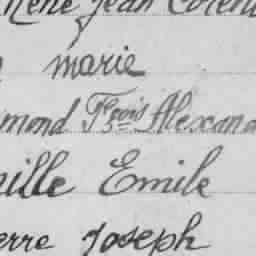 René Jean Corent
marie
mond Fçois Alexand
ille Emile
erre Joseph